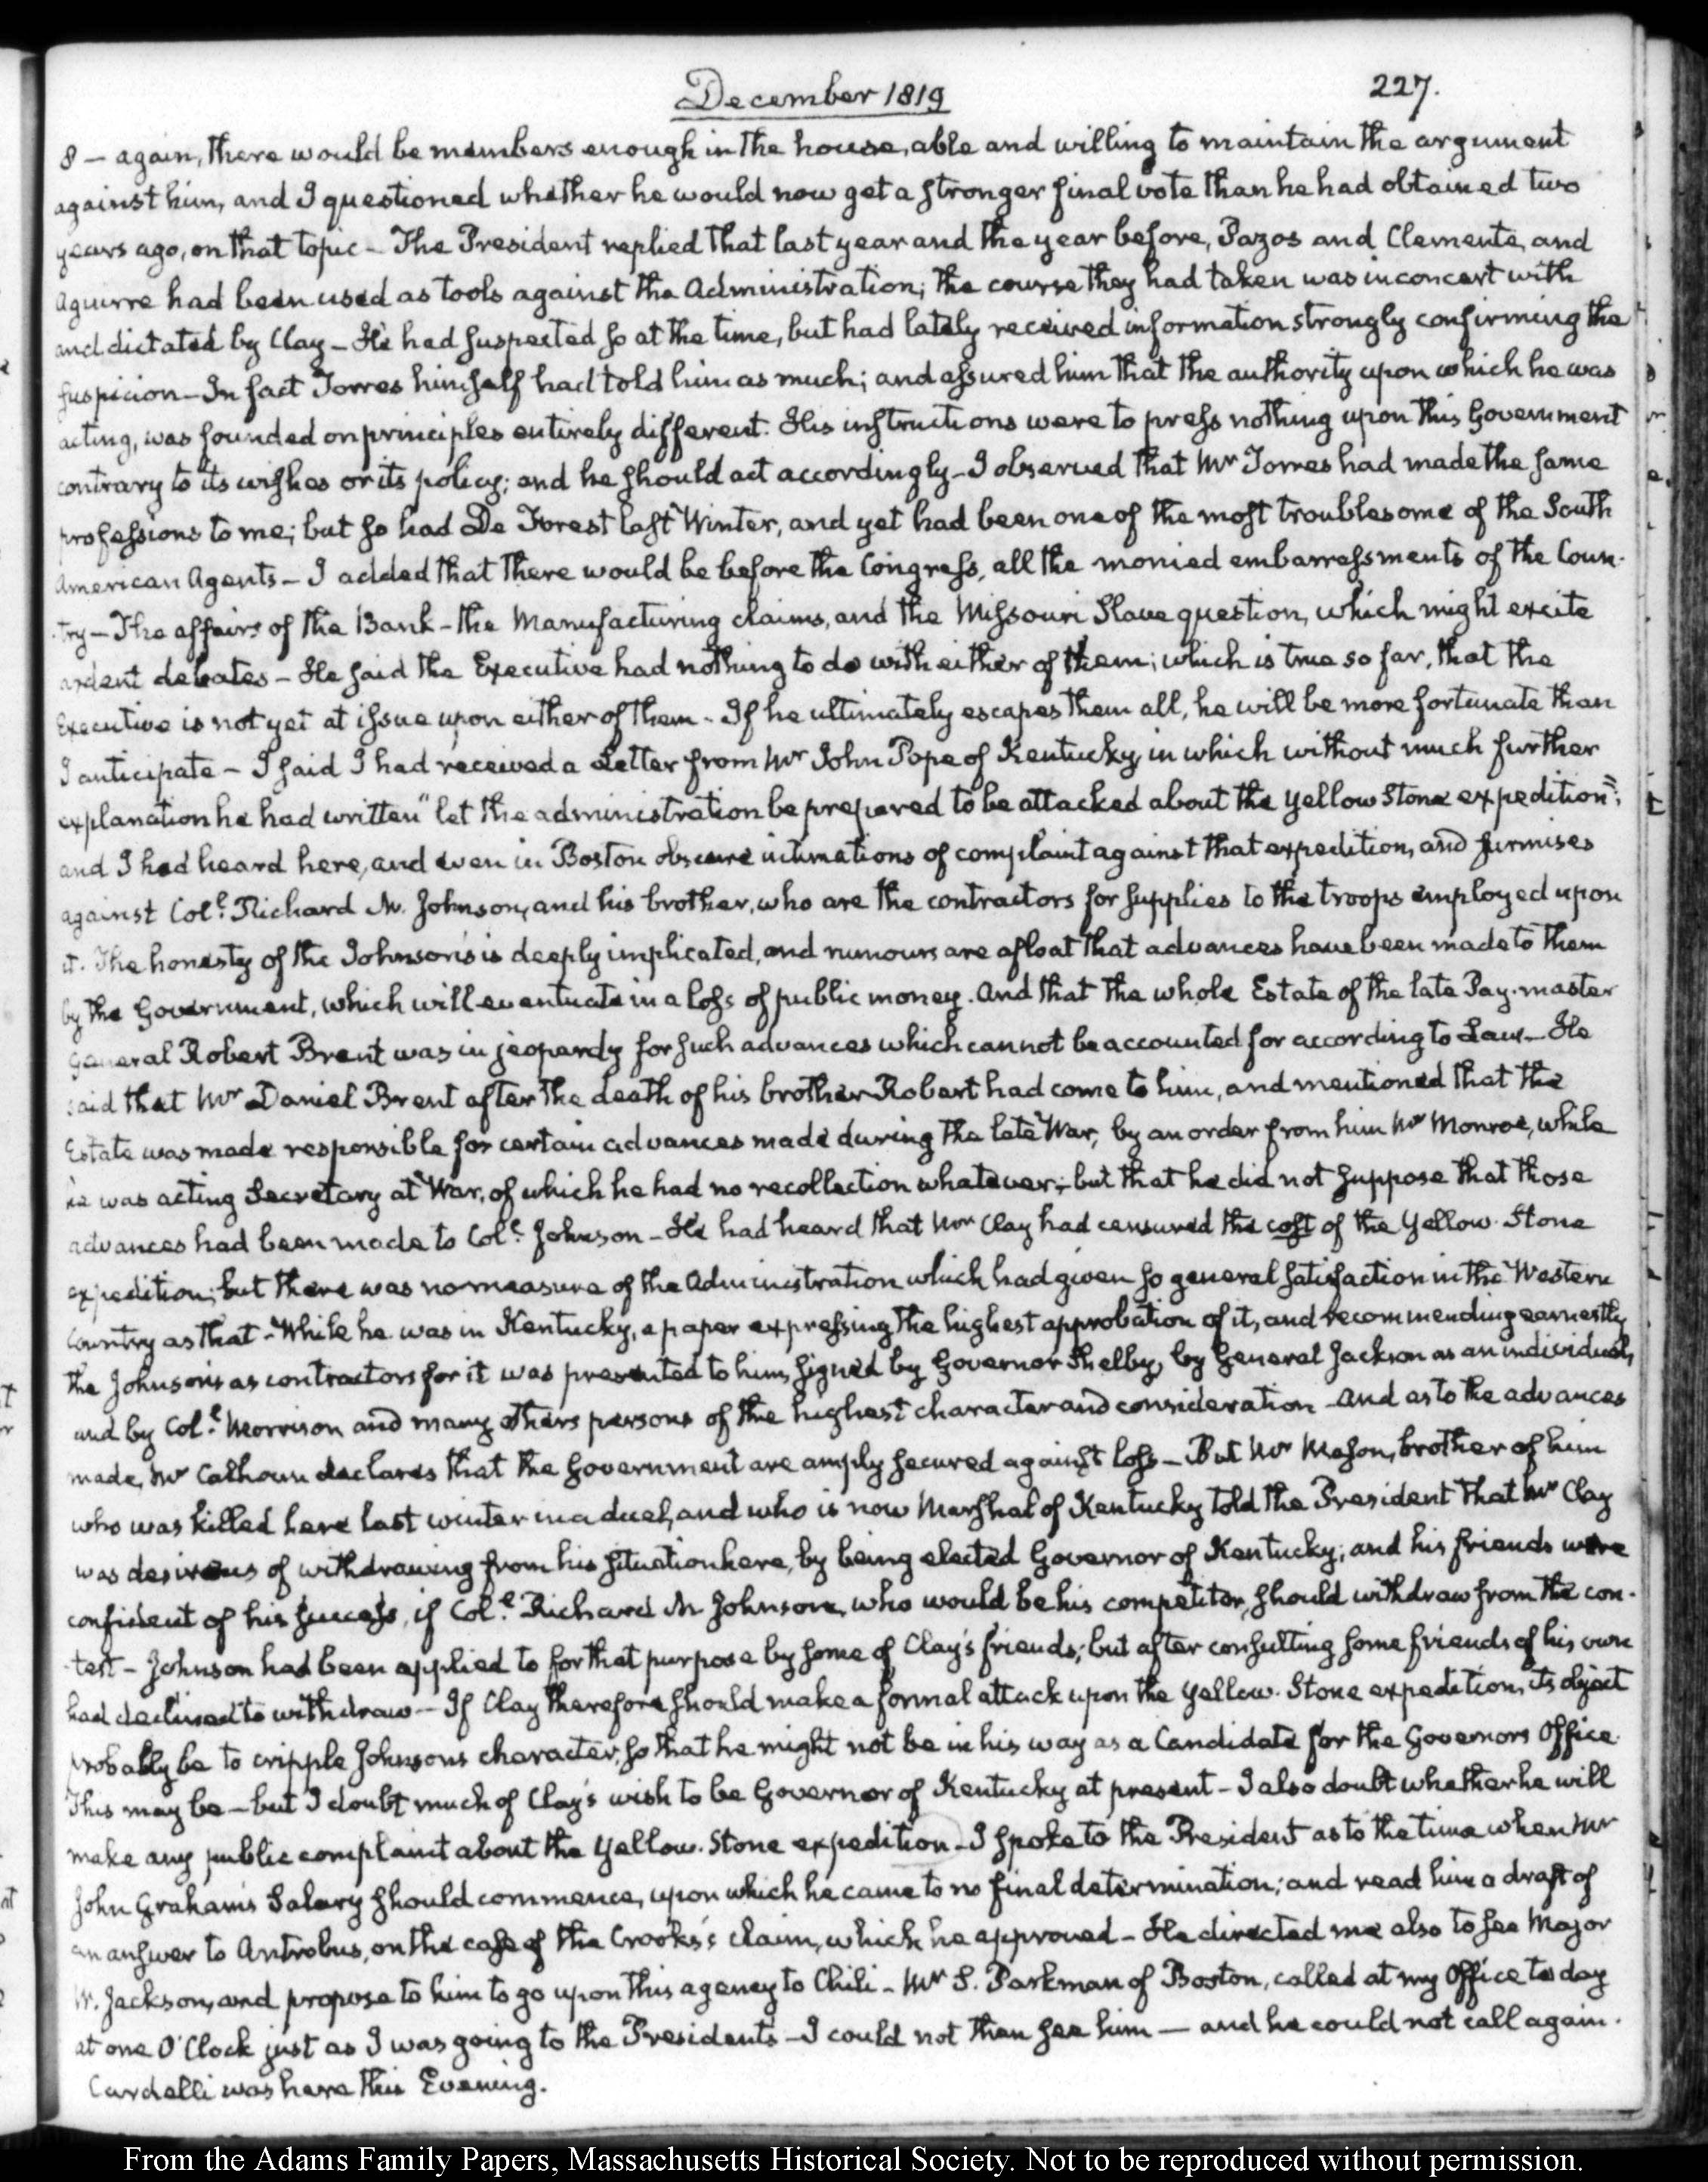 December 1819
227.
8 — again, there would be members enough in the house, able and willing to maintain the argument
against him, and I questioned whether he would now get a stronger final vote than he had obtained two
years ago, on that topic — The President replied that last year and the year before, Pazos and Clemente, and
Aguirre had been used as tools against the Administration; the course they had taken was in concert with
and dictated by Clay — He had suspected so at the time, but had lately received information strongly confirming the
suspicion — In fact Torres himself had told him as much; and assured him that the authority upon which he was
acting, was founded on principles entirely different. His instructions were to press nothing upon this Government
contrary to its wishes or its policy; and he should act accordingly — I observed that Mr Torres had made the same
professions to me; but so had De Forest last Winter, and yet had been one of the most troublesome of the South
American Agents — I added that there would be before the Congress, all the monied embarrassments of the Coun-
-try — The affairs of the Bank — the Manufacturing claims, and the Missouri Slave question, which might excite
ardent debates — He said the Executive had nothing to do with either of them; which is true so far, that the
Executive is not yet at issue upon either of them — If he ultimately escapes them all, he will be more fortunate than
I anticipate — I said I had received a Letter from Mr John Pope of Kentucky, in which without much further
explanation he had written "let the administration be prepared to be attacked about the Yellow Stone expedition";
and I had heard here, and even in Boston obscure intimations of complaint against that expedition, and surmises
against Col.l Richard M. Johnson, and his brother, who are the contractors for supplies to the troops employed upon
it. The honesty of the Johnson's is deeply implicated, and rumours are afloat that advances have been made to them
by the Government, which will eventuate in a loss of public money. And that the whole Estate of the late Pay-master
General Robert Brent was in jeopardy for such advances which cannot be accounted for according to Law — He
said that Mr Daniel Brent after the death of his brother Robert had come to him, and mentioned that the
Estate was made responsible for certain advances made during the late War, by an order from him Mr Monroe, while
he was acting Secretary at War, of which he had no recollection whatever; but that he did not suppose that those
advances had been made to Col.l Johnson — He had heard that Mr Clay had censured the cost of the Yellow-Stone
expedition; but there was no measure of the Administration which had given so general satisfaction in the Western
Country as that — While he was in Kentucky, a paper expressing the highest approbation of it, and recommending earnestly
the Johnson's as contractors for it was presented to him, signed by Governor Shelby, by General Jackson as an individual,
and by Col.l Morrison and many others persons of the highest character and consideration — And as to the advances
made, Mr Calhoun declares that the Government are amply secured against loss — But Mr Mason, brother of him
who was killed here last winter in a duel, and who is now Marshal of Kentucky told the President that Mr Clay
was desirous of withdrawing from his situation here, by being elected Governor of Kentucky; and his friends were
confident of his success, if Col.l Richard M Johnson, who would be his competitor, should withdraw from the con-
-test — Johnson had been applied to for that purpose by some of Clay's friends; but after consulting some friends of his own
had declined to withdraw — If Clay therefore should make a formal attack upon the Yellow-Stone expedition, its object
probably be to cripple Johnsons character, so that he might not be in his way as a Candidate for the Governors Office.
This may be — but I doubt much of Clay's wish to be Governor of Kentucky at present — I also doubt whether he will
make any public complaint about the Yellow-Stone expedition — I spoke to the President as to the time when Mr
John Graham's Salary should commence, upon which he came to no final determination; and read him a draft of
an answer to Antrobus, on the case of the Crooks's claim, which he approved — He directed me also to see Major
W. Jackson, and propose to him to go upon this agency to Chili — Mr S. Parkman of Boston, called at my Office to day
at one O'Clock just as I was going to the Presidents — I could not then see him — and he could not call again.
Cardelli was here this Evening.
From the Adams Family Papers, Massachusetts Historical Society. Not to be reproduced without permission.